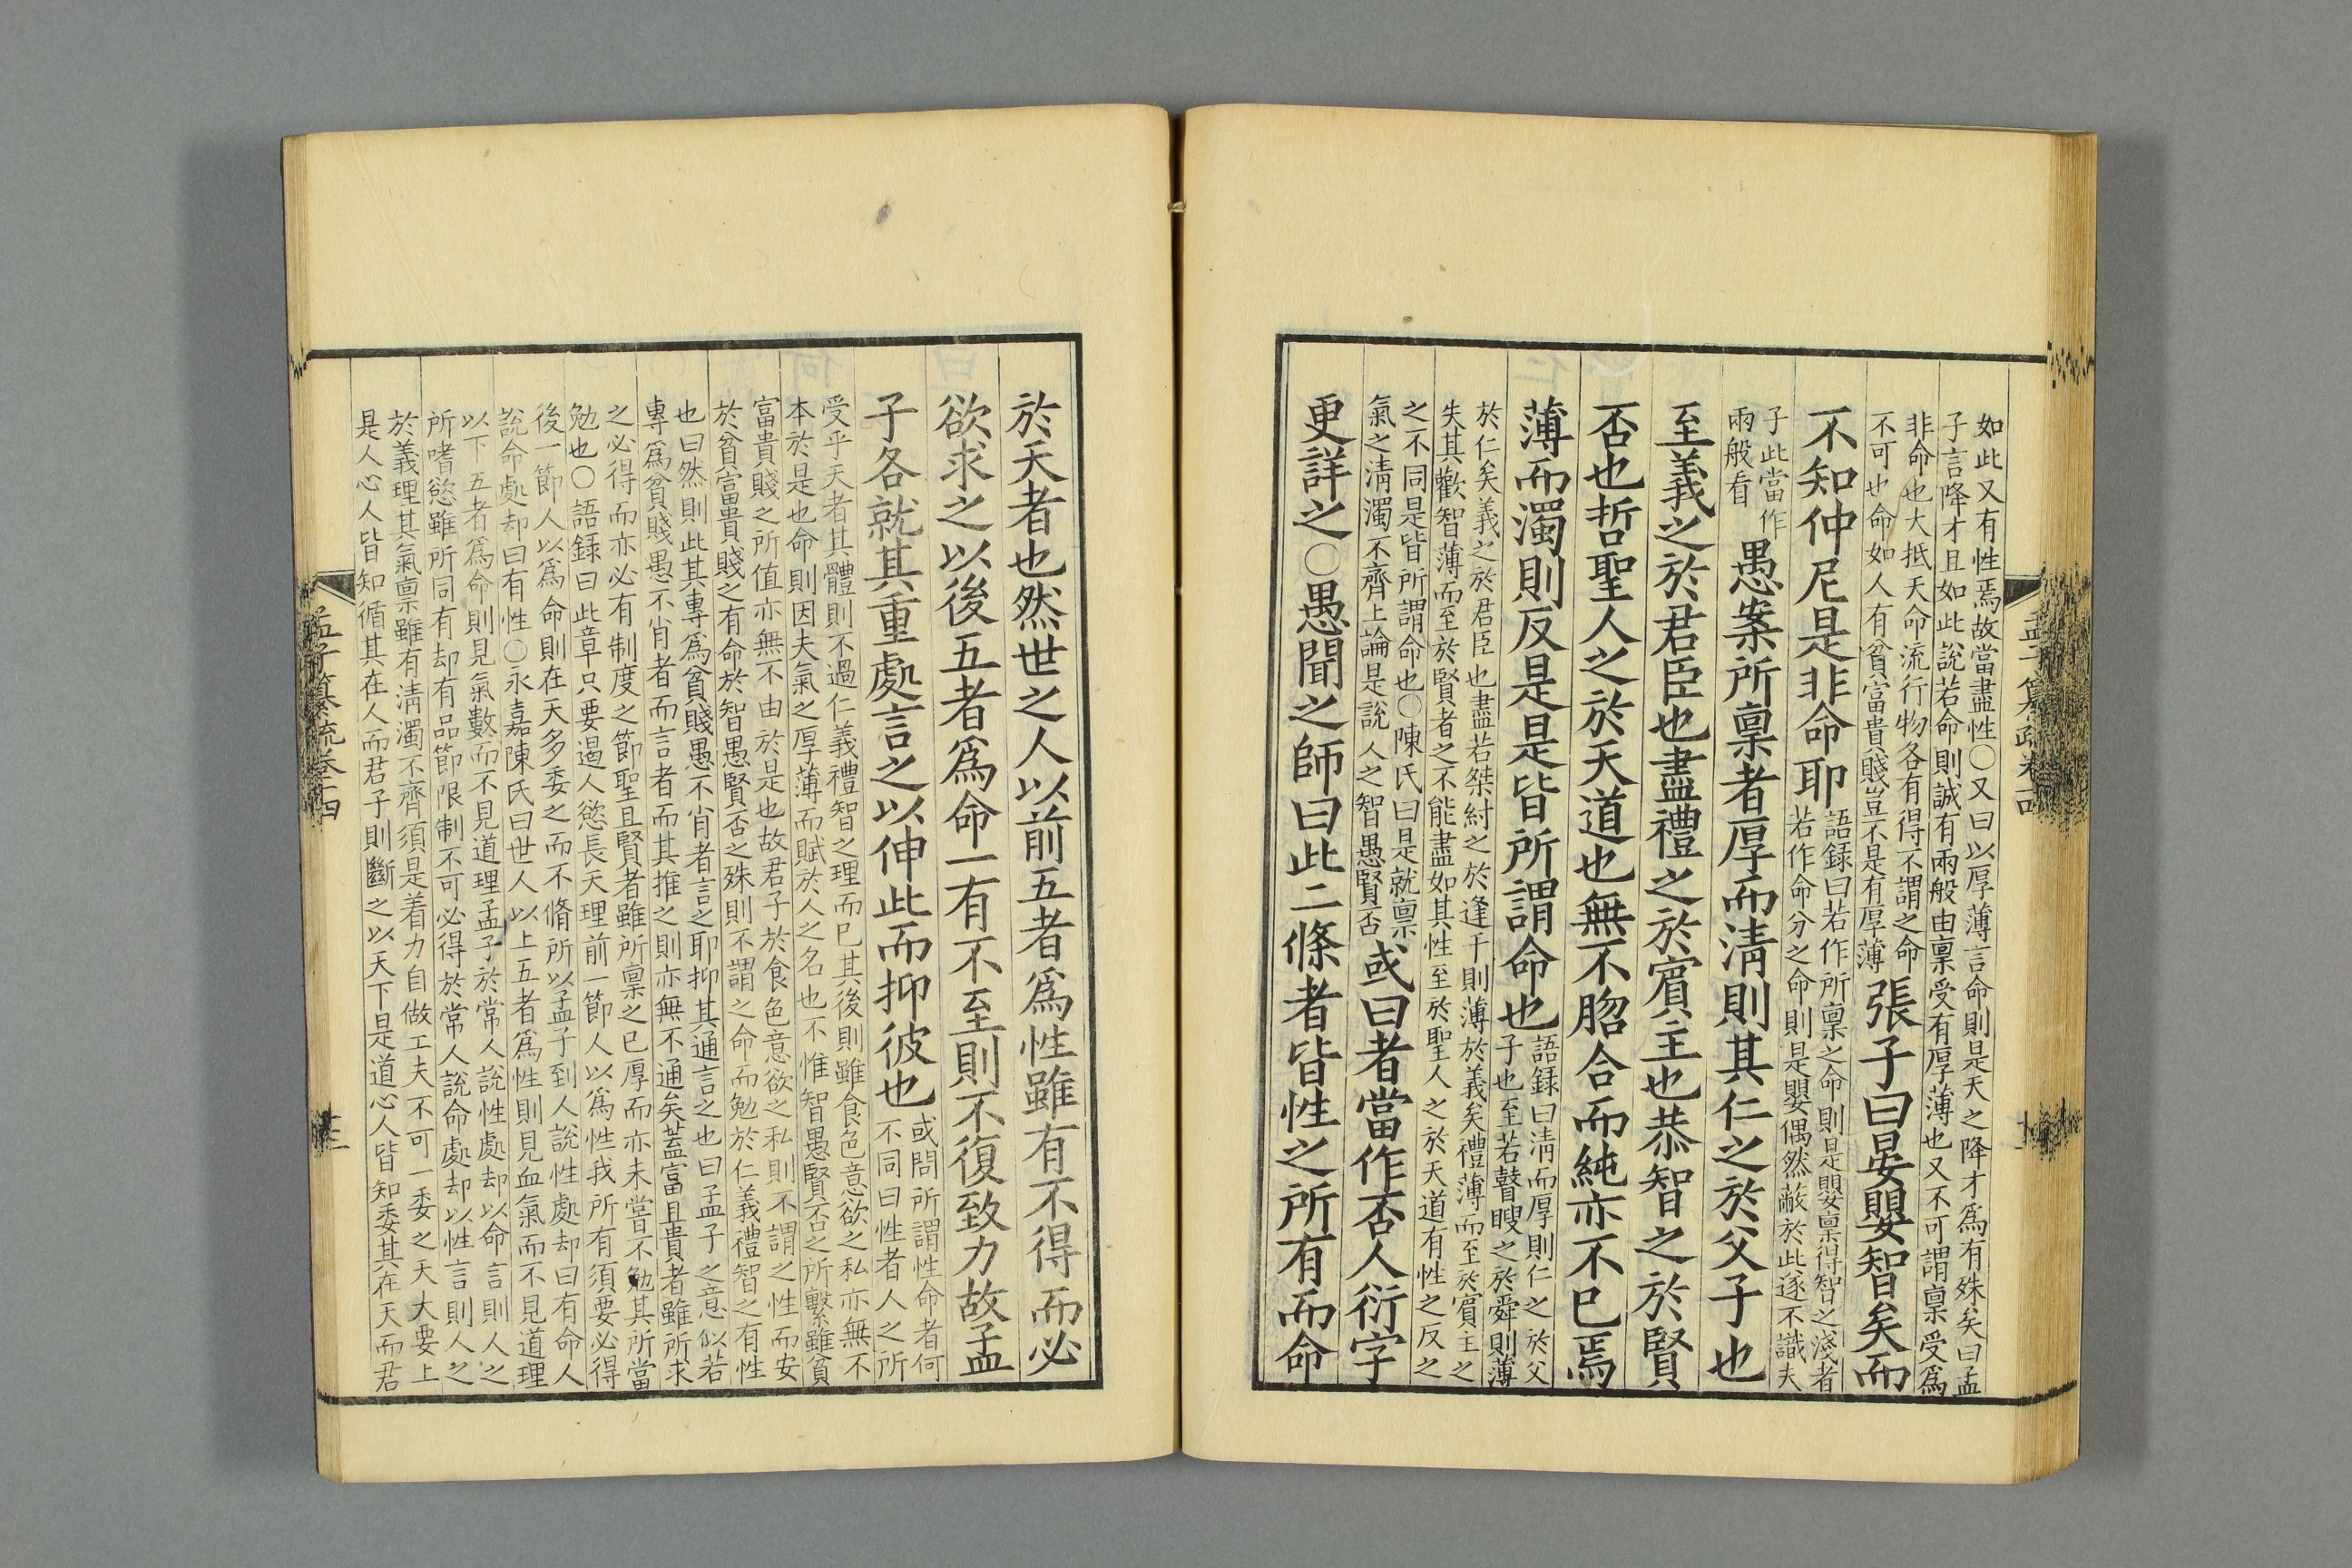 如此又有性焉故當盡性○又曰以厚薄言命則是天之降才爲有殊矣曰孟
子言降才且如此說若命則誠有兩般由稟受有厚薄也又不可謂稟受爲
非命也大抵天命流行物各有得不謂之命
不可也命如人有貧富貴賤豈不是有厚薄
張子曰晏嬰智矣而
不知仲尼是非命耶
語録曰若作所稟之命則是嬰稟得智之淺者
若作命分之命則是嬰偶然蔽於此遂不識夫
子此當作
兩般看
愚案所稟者厚而淸則其仁之於父子也
至義之於君臣也盡禮之於賓主也恭智之於賢
否也哲聖人之於天道也無不脗合而純亦不已焉
薄而濁則反是是皆所謂命也
語録曰淸而厚則仁之於父
子也至若瞽瞍之於舜則薄
於仁矣義之於君臣也盡若桀紂之於逢干則薄於義矣禮薄而至於賓主之
失其歡智薄而至於賢者之不能盡如其性至於聖人之於天道有性之反之
之不同是皆所謂命也○陳氏曰是就稟
氣之淸濁不齊上論是說人之智愚賢否
或曰者當作否人衍字
更詳之○愚聞之師曰此二條者皆性之所有而命
於天者也然世之人以前五者爲性雖有不得而必
欲求之以後五者爲命一有不至則不復致力故孟
子各就其重處言之以伸此而抑彼也
或問所謂性命者何
不同曰性者人之所
受乎天者其體則不過仁義禮智之理而已其後則雖食色意欲之私亦無不
本於是也命則因夫氣之厚薄而賦於人之名也不惟智愚賢否之所繫雖貧
富貴賤之所值亦無不由於是也故君子於食色意欲之私則不謂之性而安
於貧富貴賤之有命於智愚賢否之殊則不謂之命而勉於仁義禮智之有性
也曰然則此其專爲貧賤愚不肖者言之耶抑其通言之也曰孟子之意似若
專爲貧賤愚不肖者而言者而其推之則亦無不通矣蓋富且貴者雖所求
之必得而亦必有制度之節聖且賢者雖所稟之已厚而亦未嘗不勉其所當
勉也○語録曰此章只要遏人慾長天理前一節人以爲性我所有須要必得
後一節人以爲命則在天多委之而不脩所以孟子到人說性處却曰有命人
說命處却曰有性○永嘉陳氏曰世人以上五者爲性則見血氣而不見道理
以下五者爲命則見氣數而不見道理孟子於常人說性處却以命言則人之
所嗜慾雖所同有却有品節限制不可必得於常人說命處却以性言則人之
於義理其氣稟雖有淸濁不齊須是着力自做工夫不可一委之天大要上
是人心人皆知循其在人而君子則斷之以天下是道心人皆知委其在天而君
孟子纂疏卷十四